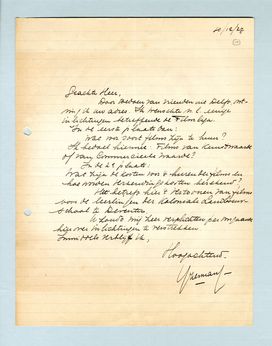 29/12/27
Geachte Heer,
Door toedoen van vrienden uit Delft, ont-
ving ik uw adres. Ik wenschte n.l. eenige
inlichtingen betreffende de Filmliga.
In de eerste plaats dan:
Wat voor soort films zijn te huur?
Ik bedoel hiermee: Films van Kunstwaarde
of van Commercieele waarde?
In de 2e plaats:
Wat zijn de kosten voor 't huren der films en
hoe worden verzendingskosten berekend?
Het betreft hier 't vertoonen van films
voor de leerlingen der Koloniale Landbouw
School te Deventer.
U zoudt mij zeer verplichten per omgaande
hierover inlichtingen te verstrekken
Inmiddels verblijf ik,
Hoogachtend